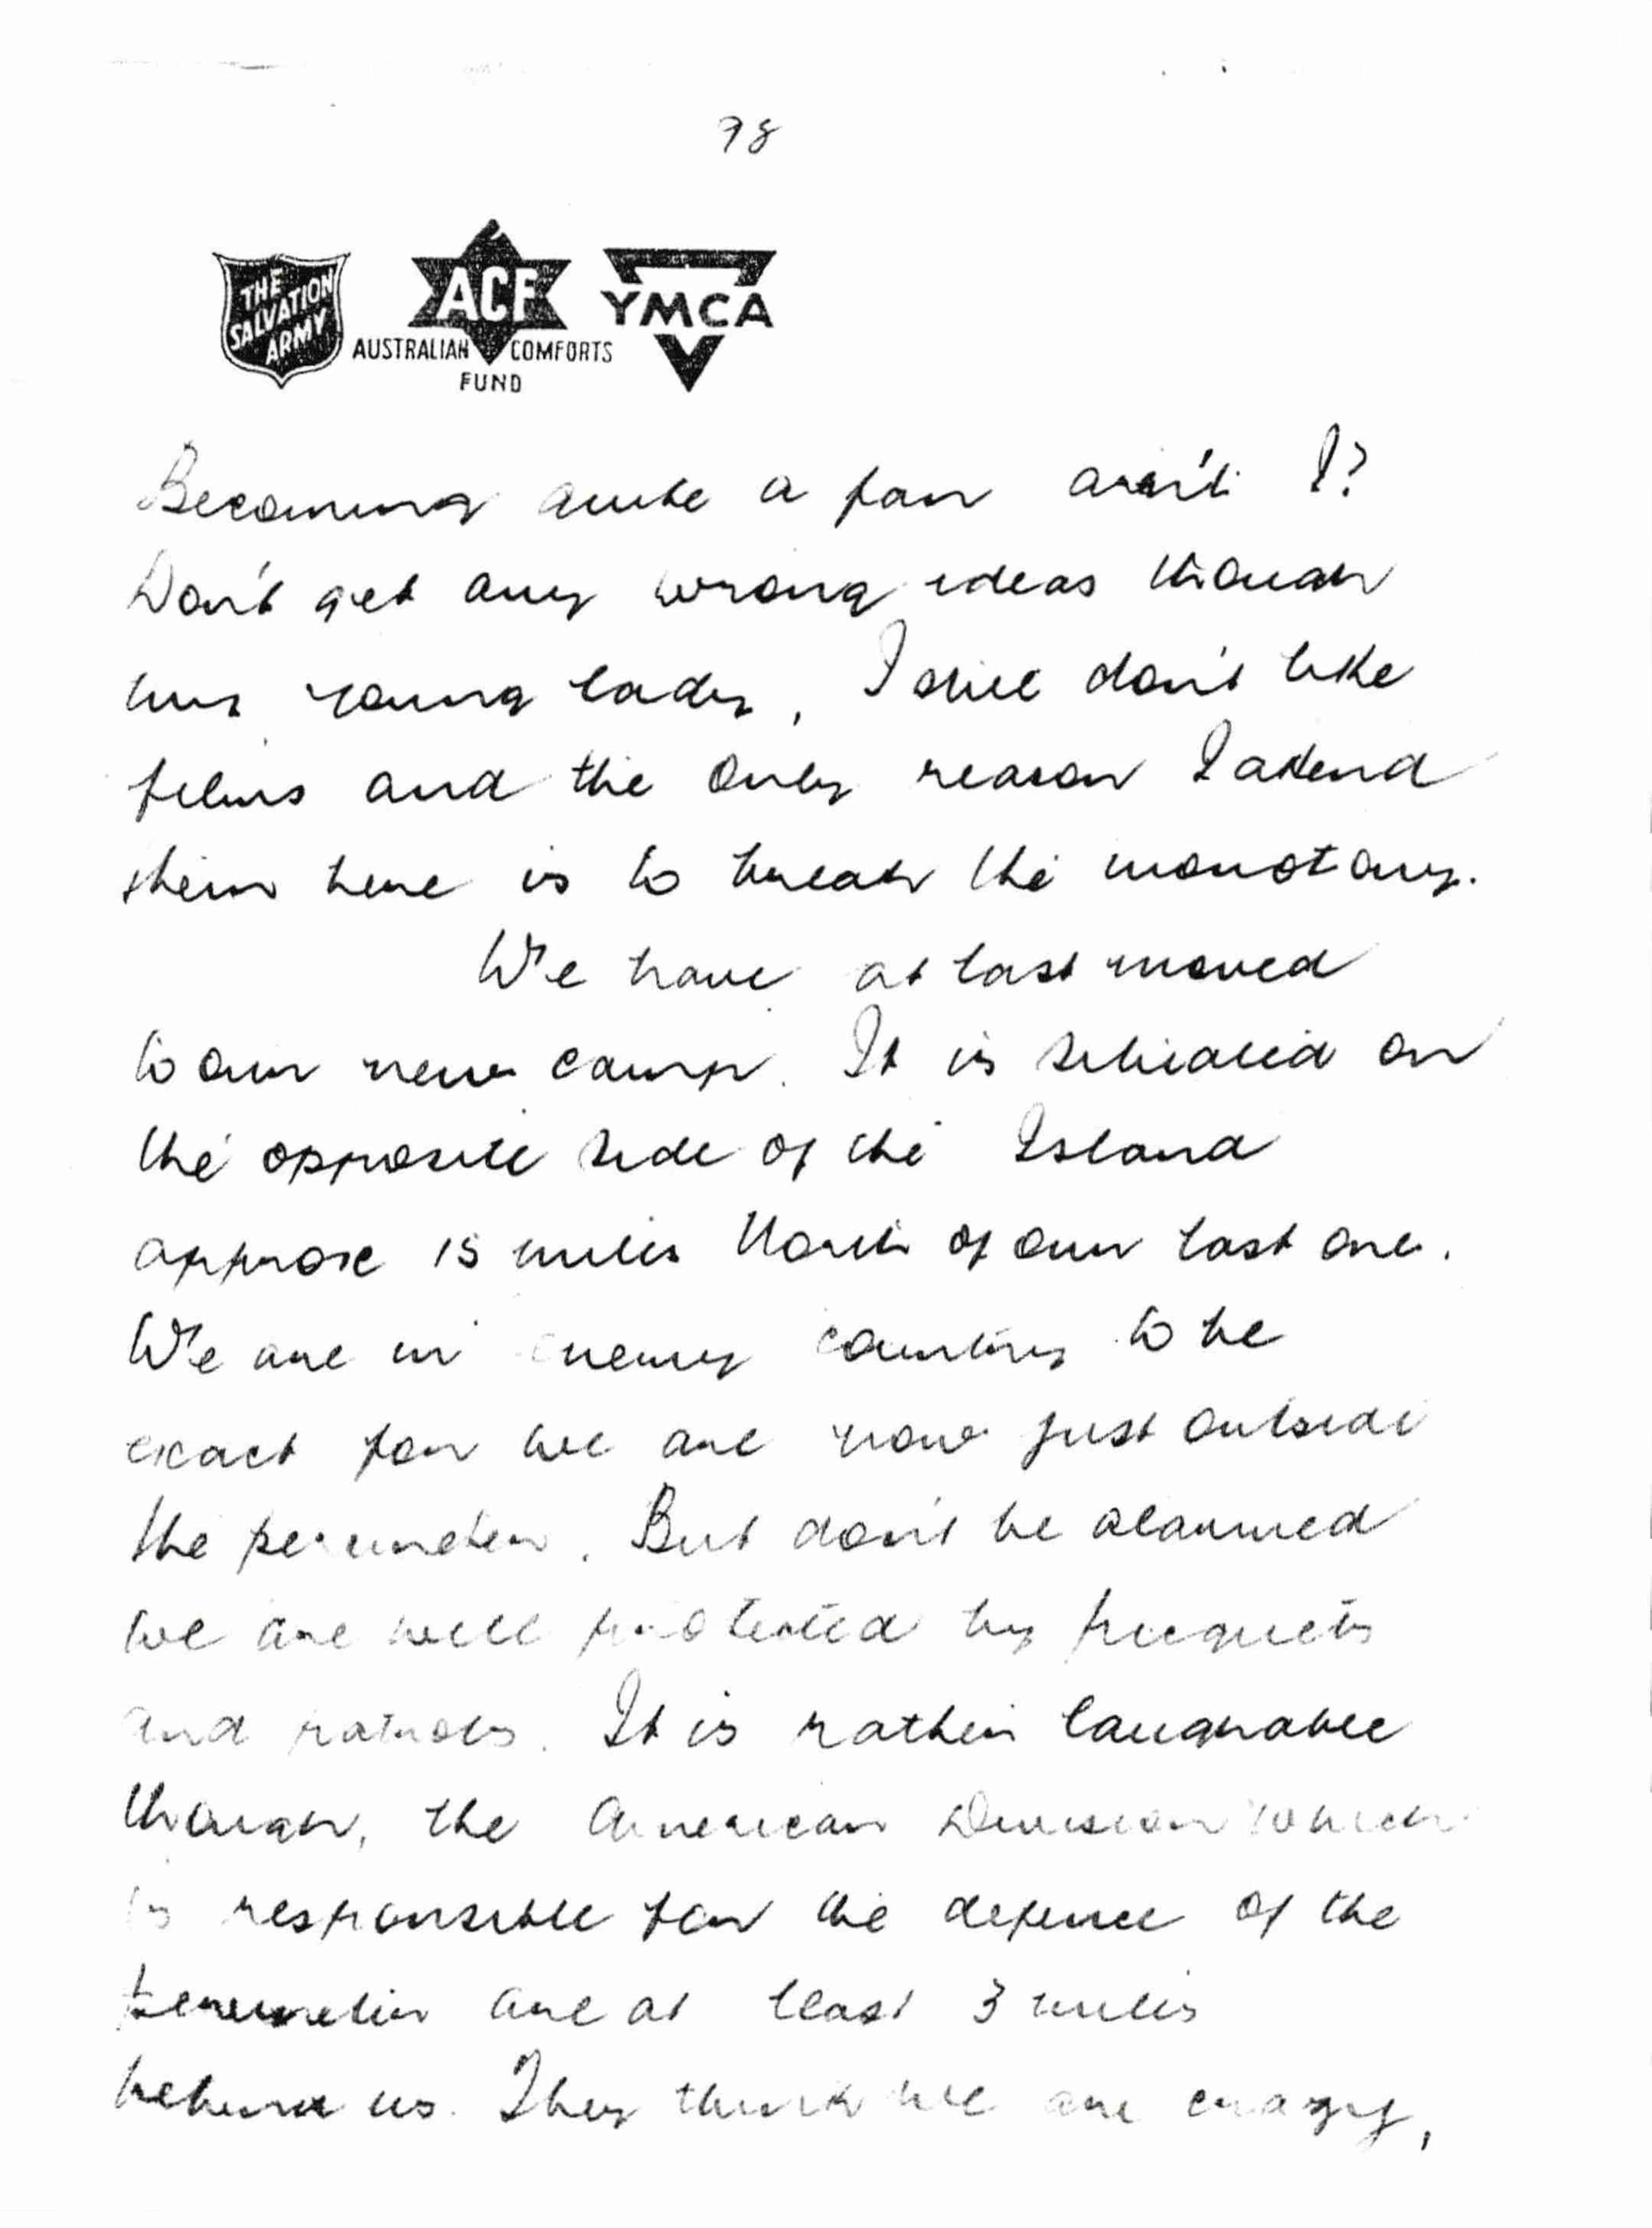 98
THE SALVATION ARMY
ACF
AUSTRALIAN COMFORTS FUND
YMCA
Becoming quite a fan aren't I?
Don't get any wrong ideas though
my young lady, I still don't like
films and the only reason I attend
them here is to break the monotony.
We have at last moved
to our new camp. It is situated on
the opposite side of the Island
approx 15 miles North of our last one.
We are in enemy country to be
exact for we are now just outside
the perimeter. But don't be alarmed
we are well protected by picquets
and patrols. It is rather laughable
though, the American Division which
is responsible for the defence of the
perimeter are at least 3 miles
behind us. They think we are crazy,